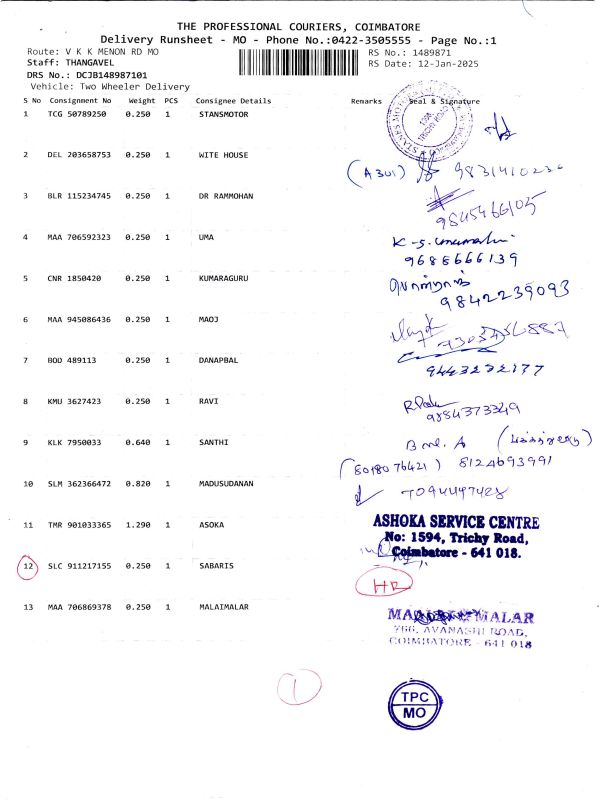 THE PROFESSIONAL COURIERS, COIMBATORE
Delivery Runsheet - MO - Phone No.:0422-3505555 - Page No.:1
Route: V K K MENON RD MO
RS No.: 1489871
Staff: THANGAVEL
RS Date: 12-Jan-2025
DRS No.: DCJB148987101
Vehicle: Two Wheeler Delivery
S No Consignment No Weight PCS Consignee Details Remarks Seal & Signature
1 TCG 50789250 0.250 1 STANSMOTOR
2 DEL 203658753 0.250 1 WITE HOUSE
(A301)
3 BLR 115234745 0.250 1 DR RAMMOHAN
9845466105
4 MAA 706592323 0.250 1 UMA
9688666139
5 CNR 1850420 0.250 1 KUMARAGURU
9842239093
6 MAA 945086436 0.250 1 MAOJ
7 BOD 489113 0.250 1 DANAPBAL
9443232177
8 KMU 3627423 0.250 1 RAVI
9884373349
9 KLK 7950033 0.640 1 SANTHI
(8018076421) 8124693991
10 SLM 362366472 0.820 1 MADUSUDANAN
7094497428
11 TMR 901033365 1.290 1 ASOKA
ASHOKA SERVICE CENTRE
No: 1594, Trichy Road,
Coimbatore - 641 018.
12 SLC 911217155 0.250 1 SABARIS
HR
13 MAA 706869378 0.250 1 MALAIMALAR
MALAR
766, AVANASHI ROAD,
COIMBATORE - 641 018
1
TPC
MO